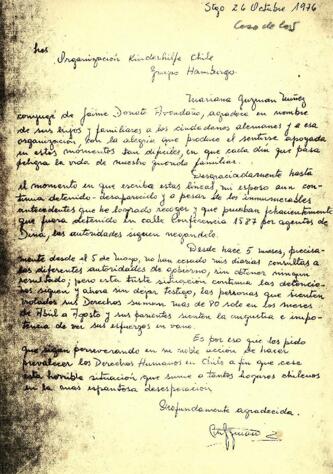 Stgo 26 Octubre 1976
Caso de los 5
Sres
Organización Kinderhilfe Chile
Grupo Hamburgo.
Mariana Guzman Nuñez
conyuge de Jaime Donato Avendaño, agradece en nombre
de sus hijos y familiares a los ciudadanos alemanes y a esa
organización, con la alegria que produce el sentirse apoyada
en estos momentos tan dificiles, en que cada dia que pasa
peligra la vida de nuestro querido familiar.
Desgraciadamente hasta
el momento en que escribo estas líneas, mi esposo aun con
tinua detenido-desaparecido y a pesar de los innumerables
antecedentes que he logrado recoger y que prueban fehacientemente
que fuera detenido en calle Conferencia 1587 por agentes de
Dina, las autoridades siguen negandolo.
Desde hace 5 meses, preci
mente desde el 5 de Mayo, no han cesado mis diarias consultas a
las diferentes autoridades de gobierno, sin obtener ningun
resultado; pero esta triste situación continua las detencio
siguen y ahora sin dejar testigo, las personas que sienten
sus Derechos suman mas de 80 solo en los meses
de Abril a Agosto y sus parientes sienten la angustia e impo
tencia de ver sus esfuerzos en vano.
Es por eso que les pido
que sigan perseverando en su noble accion de hacer
prevalecer los Derechos Humanos en Chile a fin que cese
esta horrible situación que sume a tantos hogares chilenos
en la mas espantosa desesperacion.
Profundamente agradecida.